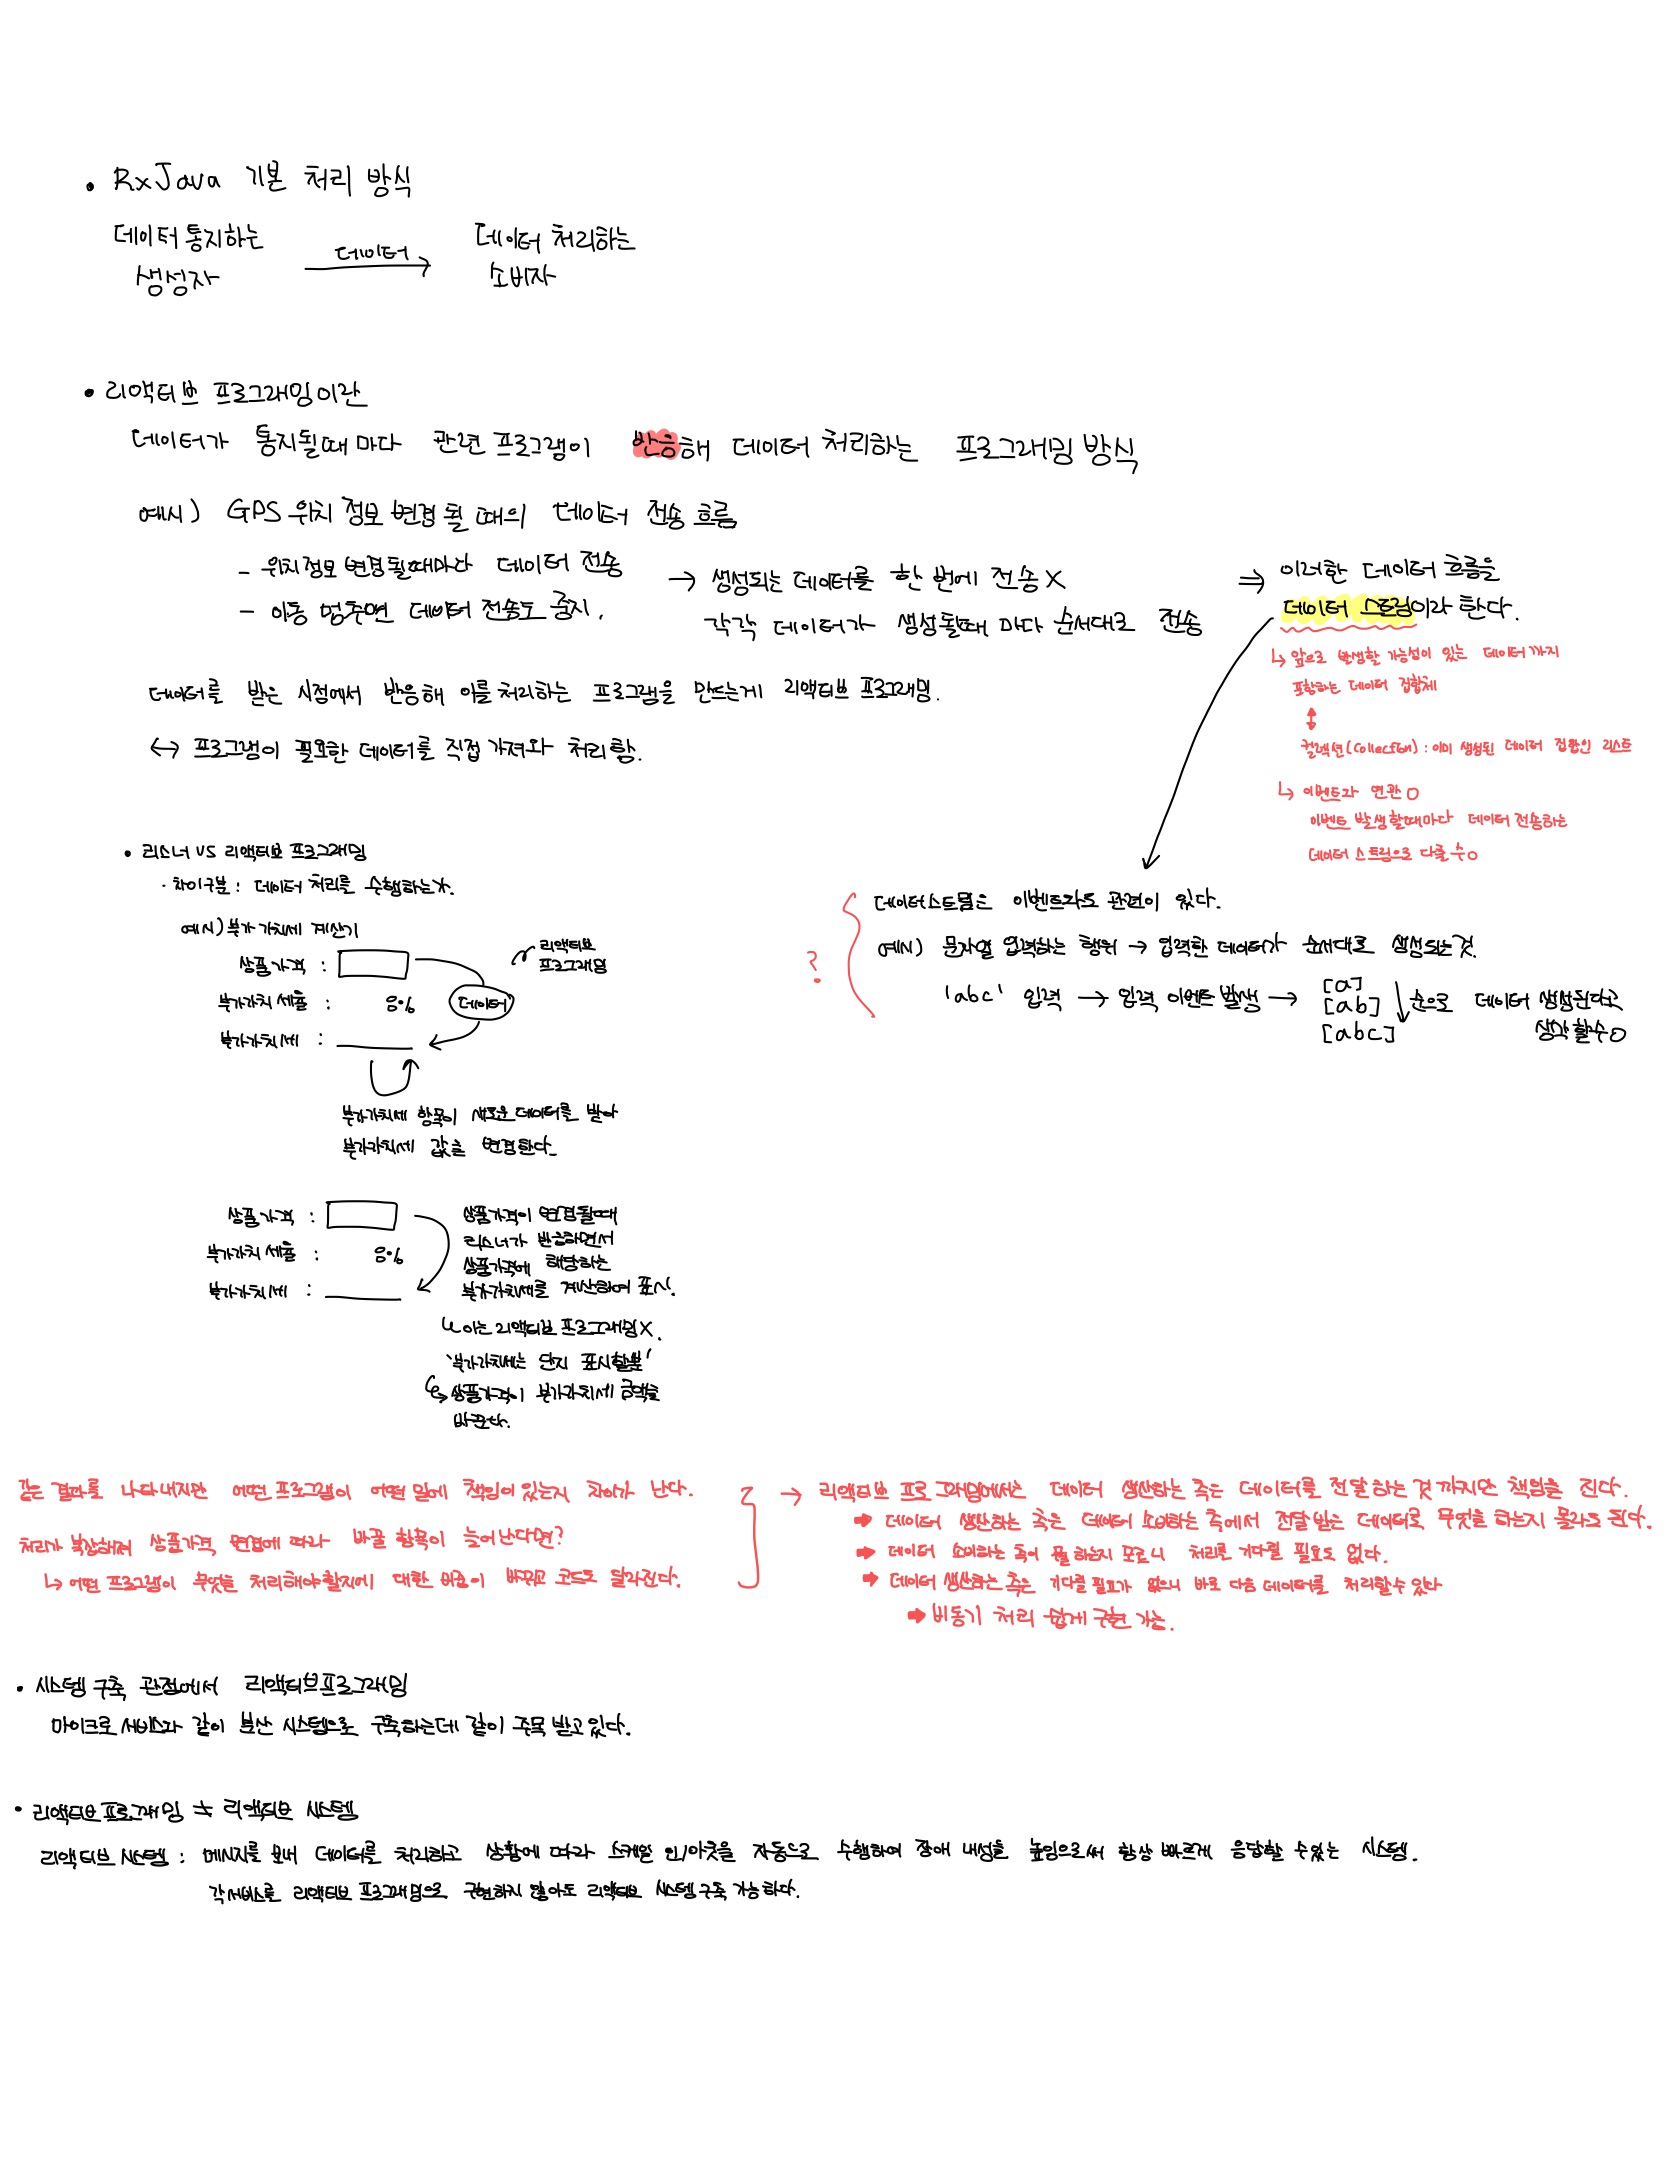 • RxJava 기본 처리 방식
데이터 통지하는
생성자
데이터
데이터 처리하는
소비자
• 리액티브 프로그래밍이란
데이터가 통지될때 마다 관련 프로그램이 반응해 데이터 처리하는 프로그래밍 방식
예시) GPS 위치 정보 변경 될 때의 데이터 전송 흐름
- 위치정보 변경될때마다 데이터 전송
- 이동 멈추면 데이터 전송도 중지.
→ 생성되는 데이터를 한 번에 전송 X
각각 데이터가 생성될때 마다 순서대로 전송
⇒ 이러한 데이터 흐름을
데이터 스트림이라 한다.
↳ 앞으로 발생할 가능성이 있는 데이터 까지
포함하는 데이터 집합체
↕
컬렉션(Collection) : 이미 생성된 데이터 집합인 리스트
↳ 이벤트와 연관 O
이벤트 발생할때마다 데이터 전송하는
데이터 스트림으로 다룰 수 O
데이터를 받은 시점에서 반응해 이를 처리하는 프로그램을 만드는게 리액티브 프로그래밍.
↔ 프로그램이 필요한 데이터를 직접 가져와 처리함.
? 데이터스트림은 이벤트와도 관련이 있다.
예시) 문자열 입력하는 행위 → 입력한 데이터가 순서대로 생성되는 것.
'abc' 입력 → 입력 이벤트 발생 →
[a]
[ab]
[abc]
순으로 데이터 생성된다고
생각 할수 O
• 리스너 VS 리액티브 프로그래밍
· 차이구분 : 데이터 처리를 수행하는 자.
예시) 부가 가치세 계산기
상품가격 :
부가가치 세율 : 8%
부가가치세 :
데이터
리액티브
프로그래밍
부가가치세 항목이 새로운 데이터를 받아
부가가치세 값을 변경한다.
상품가격 :
부가가치 세율 : 8%
부가가치세 :
상품가격이 변경될때
리스너가 반응하면서
상품가격에 해당하는
부가가치세를 계산하여 표시.
↳ 이는 리액티브 프로그래밍 X.
'부가가치세는 단지 표시할뿐'
↳ 상품가격이 부가가치세 금액을
바꾼다.
같은 결과를 나타내지만 어떤 프로그램이 어떤 일에 책임이 있는지 차이가 난다.
처리가 복잡해져 상품가격 변경에 따라 바꿀 항목이 늘어난다면?
↳ 어떤 프로그램이 무엇을 처리해야할지에 대한 비중이 바뀌고 코드도 달라진다.
→ 리액티브 프로그래밍에서는 데이터 생산하는 측은 데이터를 전달하는 것 까지만 책임을 진다.
➡ 데이터 생산하는 측은 데이터 소비하는 측에서 전달 받은 데이터로 무엇을 하는지 몰라도 된다.
➡ 데이터 소비하는 측이 뭘 하는지 모르니 처리를 기다릴 필요도 없다.
➡ 데이터 생산하는 측은 기다릴 필요가 없으니 바로 다음 데이터를 처리할수 있다
➡ 비동기 처리 쉽게 구현 가능.
• 시스템 구축 관점에서 리액티브프로그래밍
마이크로 서비스와 같이 분산 시스템으로 구축하는데 같이 주목 받고 있다.
• 리액티브 프로그래밍 ≠ 리액티브 시스템
리액티브 시스템 : 메시지를 보내 데이터를 처리하고 상황에 따라 스케일 인/아웃을 자동으로 수행하여 장애 내성을 높임으로써 항상 빠르게 응답할 수있는 시스템.
각 서비스를 리액티브 프로그래밍으로 구현하지 않아도 리액티브 시스템 구축 가능하다.